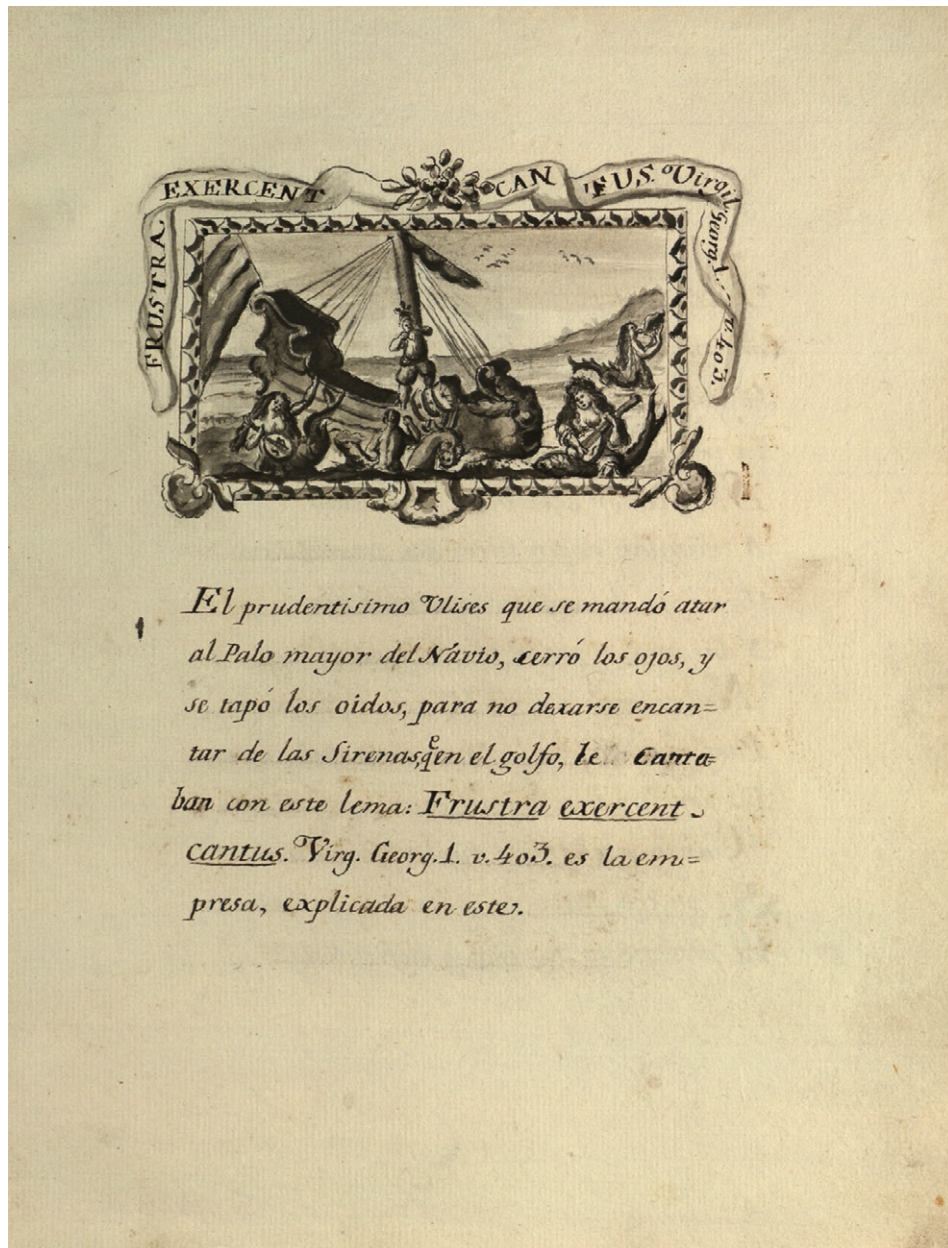 FRUSTRA.
EXERCENT
CAN
TUS. Virgil.
Georg. 1.
v. 403.
El prudentisimo Ulises que se mandó atar
al Palo mayor del Navio, cerró los ojos, y
se tapó los oidos, para no dexarse encan=
tar de las Sirenas, qͤ en el golfo, le Canta=
ban con este lema: Frustra exercent
cantus. Virg. Georg. 1. v. 403. es la em=
presa, explicada en este.